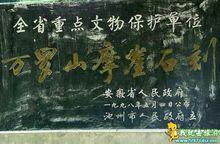 全省重点文物保护单位
万罗山摩崖石刻
安徽省人民政府
一九九八年五月四日公布
池州市人民政府立